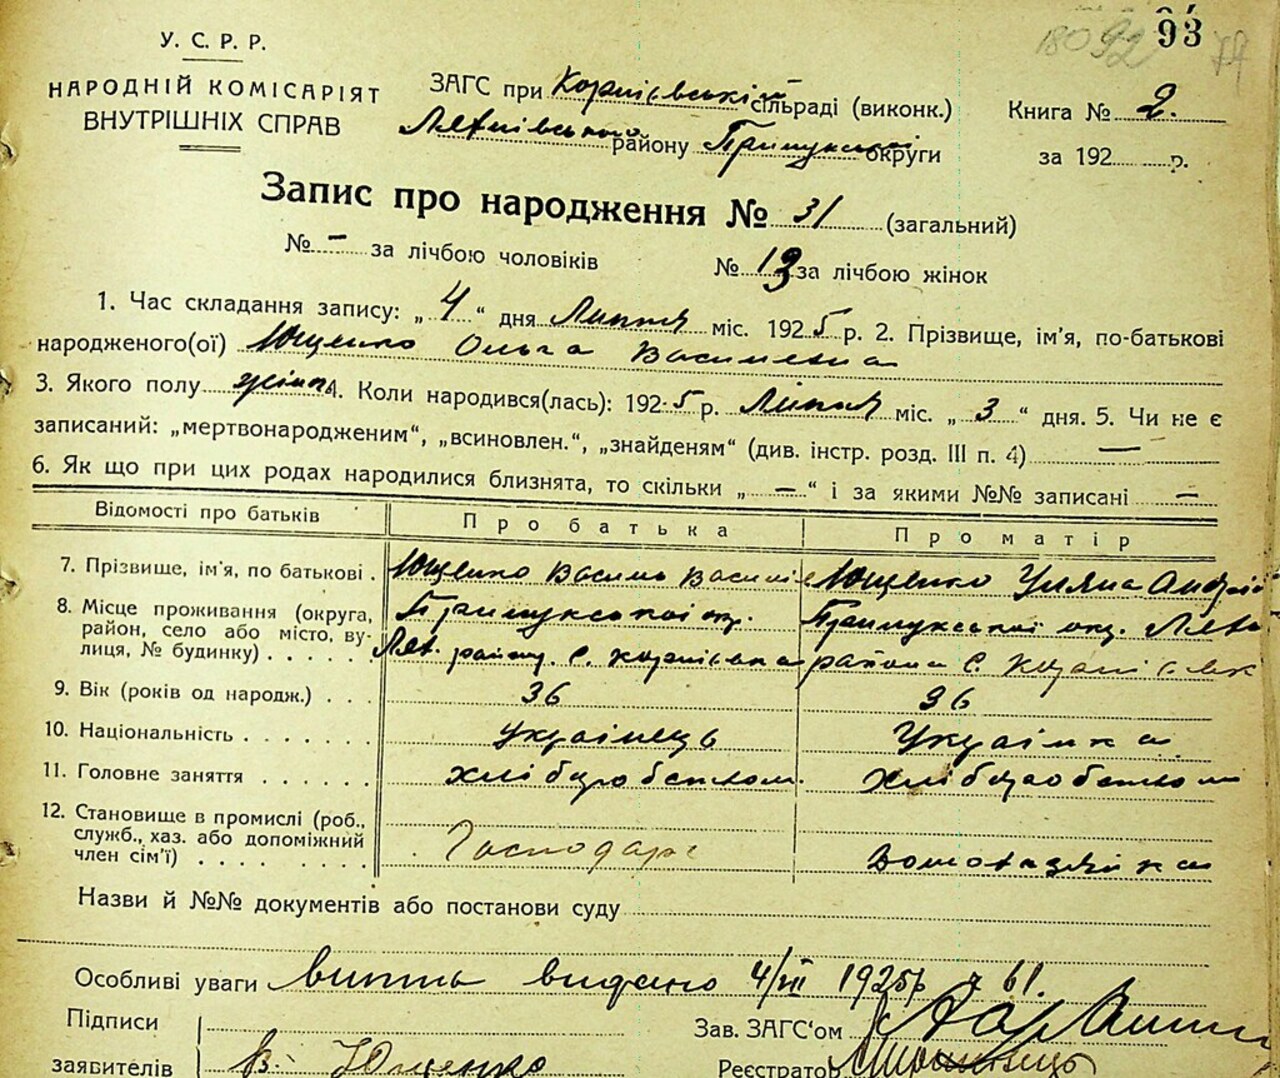 93
92
180
У. С. Р. Р.
НАРОДНІЙ КОМІСАРІЯТ
ВНУТРІШНІХ СПРАВ
ЗАГС при Корпієвській сільраді (виконк.)
району Прилуцької округи
Книга № 2.
за 192 р.
Запис про народження № 31 (загальний)
№ – за лічбою чоловіків
№ 13 за лічбою жінок
1. Час складання запису: „ 4 “ дня Липня міс. 1925 р. 2. Прізвище, ім'я, по-батькові
народженого(ої) Ющенко Ольга Василевна
3. Якого полу жіноч. 4. Коли народився(лась): 1925 р. Липня міс. „ 3 “ дня. 5. Чи не є
записаний: „мертвонародженим“, „всиновлен.“, „знайденям“ (див. інстр. розд. III п. 4) —
6. Як що при цих родах народилися близнята, то скільки „ — “ і за якими №№ записані —
Відомості про батьків
Про батька
Про матір
7. Прізвище, ім'я, по батькові .
Ющенко Василь
Ющенко Уляна Андрі
8. Місце проживання (округа,
район, село або місто, ву-
лиця, № будинку) . . . . .
Прилукської окр.
Лят. району. С. Корпієвка
Прилукської окр.
района С.
9. Вік (років од народж.) . . .
36
36
10. Національність . . . . . . .
Українець
Українка
11. Головне заняття . . . . . .
хліборобством.
хліборобством
12. Становище в промислі (роб.,
служб., хаз. або допоміжний
член сім'ї) . . . . . . . .
Господарь
Домохазяйка
Назви й №№ документів або постанови суду
Особливі уваги випись видано 4/VII 1925 р. № 61.
Підписи
заявителів
В. Ющенко
Зав. ЗАГС'ом
Реєстратор